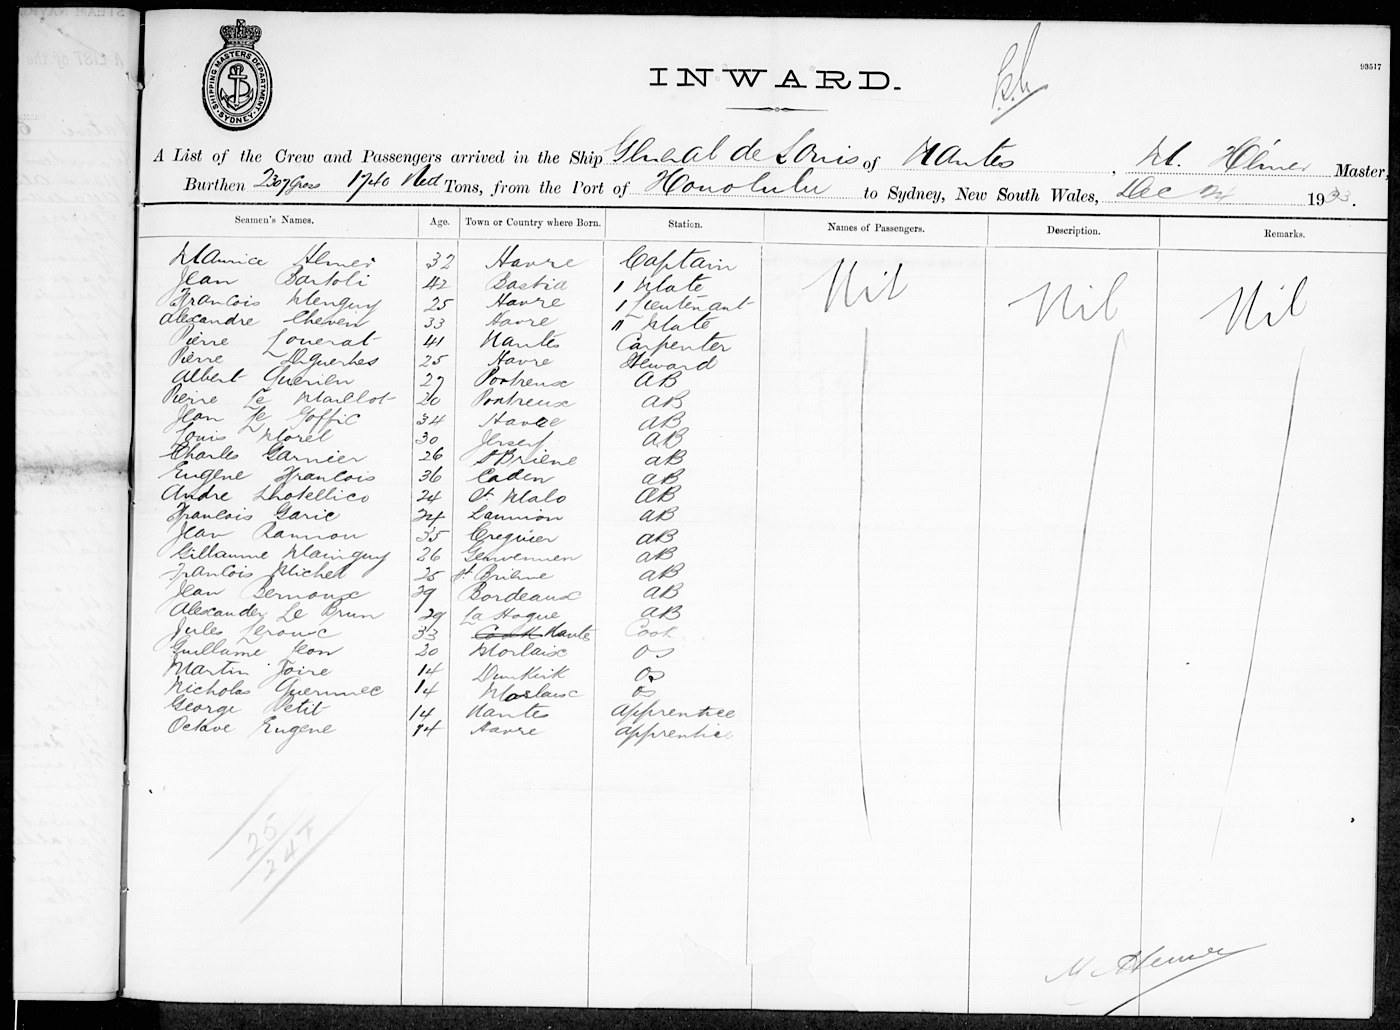 SHIPPING MASTERS DEPARTMENT SYDNEY
93517
INWARD.
A List of the Crew and Passengers arrived in the Ship General de Sonis of Nantes, M. Hémer Master,
Burthen 2307 Gross 1740 Ned Tons, from the Port of Honolulu to Sydney, New South Wales, Dec 24 1903.
Seamen's Names. Age. Town or Country where Born. Station. Names of Passengers. Description. Remarks.
Maurice Hemer 32 Havre Captain Nil Nil Nil
Jean Bartoli 42 Bastia 1 Mate
Francois Menguy 25 Havre 1 Lieutenant
Alexandre Cheven 33 Havre 11 Mate
Pierre Louerat 41 Nantes Carpenter
Pierre Deguerhes 25 Havre Steward
Albert Querien 27 Portreux AB
Pierre Le Maillot 20 Pontreux AB
Jean Le Goffic 34 Havre AB
Louis Morel 30 Jersey AB
Charles Garnier 26 St Briene AB
Eugene Francois 36 Caden AB
Andre Lhotellico 24 St. Malo AB
Francois Garic 24 Lannion AB
Jean Rannou 35 Creguier AB
Gillaume Mainguy 26 AB
Francois Michel 25 St. Briene AB
Jean Bernoux 29 Bordeaux AB
Alexander Le Brun 29 La Hogue AB
Jules Leroux 33 Nante Cook
Guillame Jean 20 Morlaix OS
Martin Joire 14 Dunkirk OS
Nicholas Quemmec 14 Morlaix OS
George Petit 14 Nantes Apprentice
Octave Eugene 14 Havre Apprentice
25
24
M Hemer